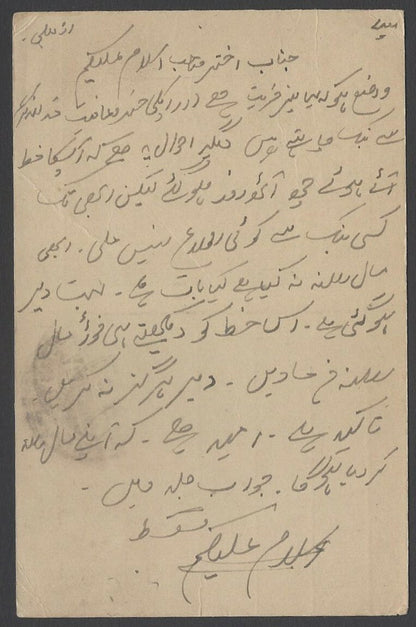 جناب اختر صاحب اسلام علیکم
واضح ہو کہ یہاں خیریت ہے اور آپکی خیر و عافیت خداوند کریم
سے نیک چاہتے ہیں دیگر احوال یہ ہے کہ آپکا خط
آئے ہوئے چھ آٹھ روز ہو گئے لیکن ابھی تک
کسی بنک سے کوئی اطلاع نہیں ملی۔ ابھی
مال روانہ نہ کیا ہے کیا بات ہے۔ بہت دیر
ہو گئی ہے۔ اس خط کو دیکھتے ہی فوراً مال
روانہ فرمادیں۔ دیر ہرگز نہ کریں۔
تاکید ہے۔ امید ہے۔ کہ آپنے مال روانہ
کر دیا ہوگا۔ جواب جلد دیں۔
فقط
اسلام علیکم